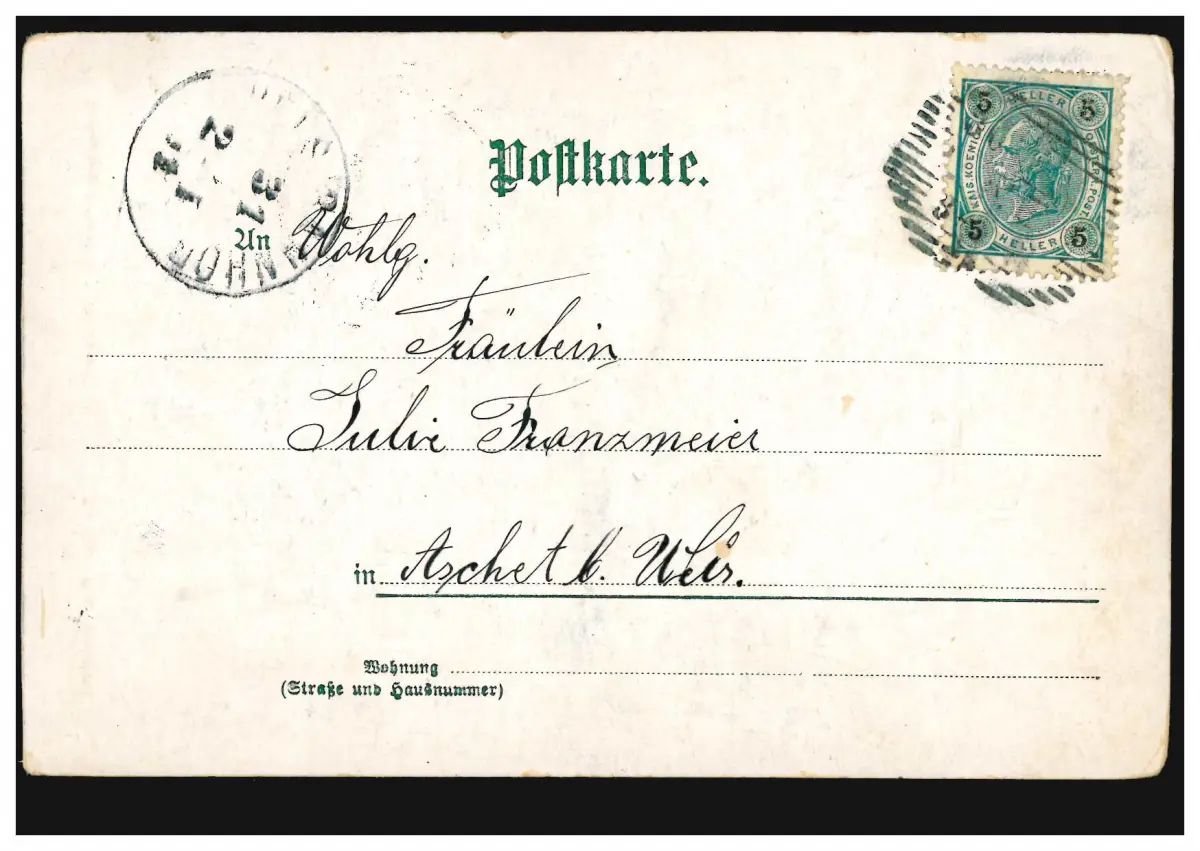 Postkarte.
5 HELLER 5
KAIS. KOENIGL.
5 HELLER 5
An Wohlg.
Fräulein
Julie Franzmeier
in Aschet b. Wels.
Wohnung
(Straße und Hausnummer)